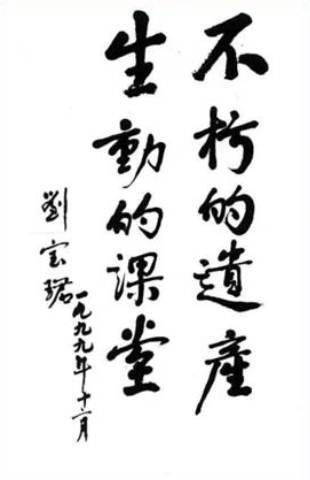 不朽的遗產
生動的课堂
劉宝珺
一九九九年十二月